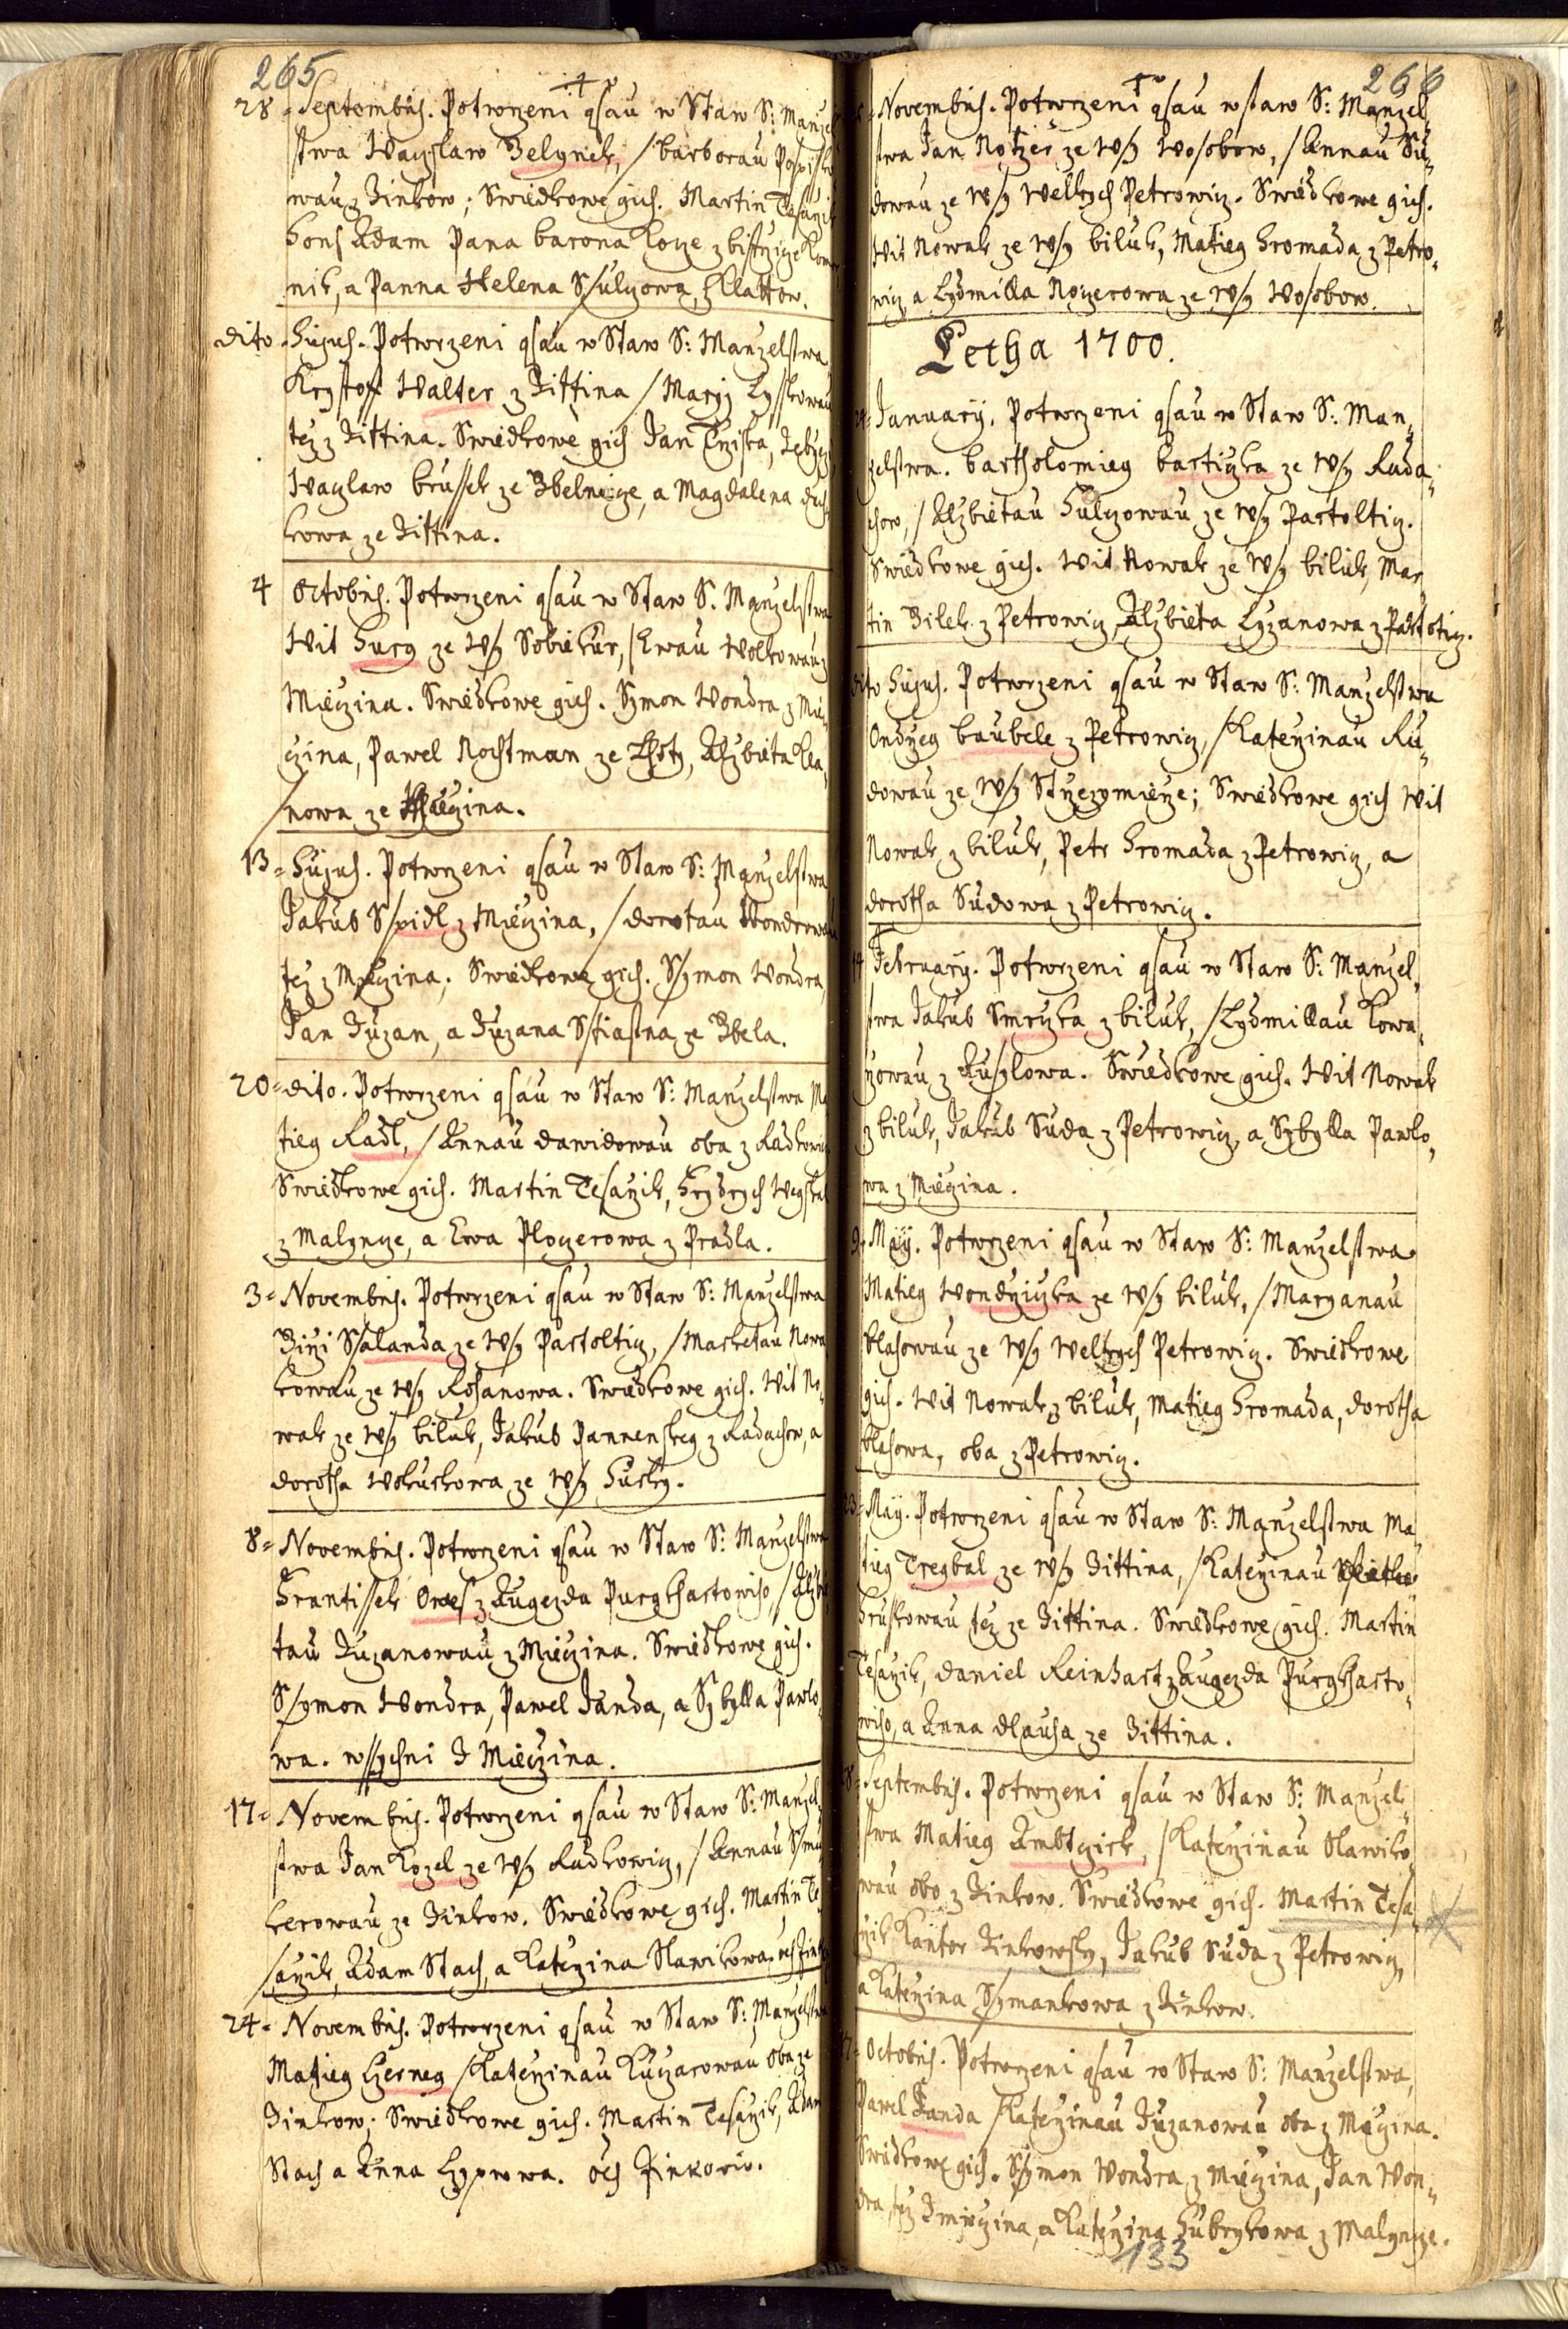 265
28 = Septembris. Potwrzeni gsau w Staw S: Manzel
stwa Waczlaw Zelynek, s Barborau Pospiss
wau z Zinkow; Swiedkowe gich. Martin Tesarzik
Hons Adam Pana Barona Kocze z bistrzicze
nik, a Panna Helena Ssulczowa, z Klattow.
dito. Hujus. Potwrzeni gsau w Staw S: Manzelstwa
Krystof Walter z Zittina s Maryj Lysskowau
tez z Zittina. Swiedkowe gich Jan
Waczlaw Brussek ze Zbelnicze, a Magdalena
kowa ze Zittina.
4 Octobris. Potwrzeni gsau w Staw S. Manzelstwa
Wit Hurg ze Wsy Sobiekur, s Ewau Wolkowau z
Mieczina. Swiedkowe gich. Symon Wondra z Mie,
czina, Pawel Rochtman ze Lhoty, Alzbieta Kla,
snowa ze Mieczina.
13 = Hujus. Potwrzeni gsau w Staw S: Manzelstwa
Jakub Sspidl z Mieczina, s Dorotau Wondrowau
tez z Mieczina; Swiedkowe gich. Ssymon Wondra,
Jan Zuzan, a Zuzana Sstiastna ze Zbela.
20 = dito. Potwrzeni gsau w Staw S: Manzelstwa Ma
tieg Radl, s Annau Dawidowau oba z Radkowicz
Swiedkowe gich. Martin Tesarzik, Frydrych
z Malyncze, a Ewa Ploczerowa z Pradla.
3 = Novembris. Potwrzeni gsau w Staw S: Manzelstwa
Girzi Ssalanda ze Wsy Partolticz, s Marketau Nowa
kowau ze Wsy Rohanowa. Swiedkowe gich. Wit No,
wak ze Wsy Biluk, Jakub Pannenskeg z Radachow, a
Dorotha Wokurkowa ze Wsy Hurky.
8 = Novembris. Potwrzeni gsau w Staw S: Manzelstwa
Frantissek Owes z Augezda Purghartowiho, s Alzbie
tau Zuzanowau z Mieczina. Swiedkowe gich.
Ssymon Wondra, Pawel Janda, a Sybylla Pawlo,
wa. wssychni z Mieczina.
17 = Novembris. Potwrzeni gsau w Staw S: Manzel,
stwa Jan Kozel ze Wsy Radkowicz, s Annau Ssmu
kerowau ze Zinkow. Swiedkowe gich. Martin Te
sarzik, Adam Stach, a Katerzina Slawikowa.
24 = Novembris. Potwrzeni gsau w Staw S: Manzelstwa
Matieg Czerneg s Katerzinau Kuczarowau oba ze
Zinkow; Swiedkowe gich. Martin Tesarzik, Adam
Stach a Anna Czyprowa. Zinkow.
266
Novembris. Potwrzeni gsau w staw S: Manzel
stwa Jan Notzer ze Wsy Wosobow, s Annau Su,
dowau ze Wsy Welkych Petrowicz. Swiedkowe gich.
Wit Nowak ze Wsy Biluk, Matieg Hromada z Petro,
wicz, a Lydmilla Noczerowa ze Wsy Wosobow.
Letha 1700.
January. Potwrzeni gsau w Staw S: Man,
zelstwa. Bartholomieg Barticzka ze Wsy Rada,
chow, s Alzbietau Hulczowau ze Wsy Partolticz.
Swiedkowe gich. Wit Nowak ze Wsy Biluk, Mar
tin Bilek z Petrowicz, Alzbieta Lyzanowa z Partoticz.
dito Hujus. Potwrzeni gsau w Staw S: Manzelstwa
Ondrzeg Baubele z Petrowicz, s Katerzinau Ru,
dowau ze Wsy Strzezymierze; Swiedkowe gich Wit
Nowak z Biluk, Petr Hromada z Petrowicz, a
Dorotha Sudowa z Petrowicz.
February. Potwrzeni gsau w Staw S: Manzel,
stwa Jakub Smrczka z Biluk, s Lydmillau Kowa,
rzowau z Auslowa. Swiedkowe gich. Wit Nowak
z Biluk, Jakub Suda z Petrowicz, a Sybylla Pawlo,
wa z Mieczina.
May. Potwrzeni gsau w Staw S: Manzelstwa
Matieg Wondrziczka ze Wsy Biluk, s Maryanau
Blahowau ze Wsy Welkych Petrowicz. Swiedkowe
gich. Wit Nowak z Biluk, Matieg Hromada, Dorotha
Blahowa, oba z Petrowicz.
23 = May. Potwrzeni gsau w Staw S: Manzelstwa Ma
tieg Tregbal ze Wsy Zittina, s Katerzinau
Hruskowau tez ze Zittina. Swiedkowe gich. Martin
Tesarzik, Daniel Reinhart z Augezda Purgharto,
wiho, a Anna Dlauha ze Zittina.
Septembris. Potwrzeni gsau w Staw S: Manzel,
stwa Matieg Ambtgirk, s Katerzinau Slawiko,
wau obo z Zinkow. Swiedkowe gich. Martin Tesa,
rzik Kantor Zinkowsky, Jakub Suda z Petrowicz,
a Katerzina Ssymankowa z Zinkow.
Octobris. Potwrzeni gsau w Staw S: Manzelstwa,
Pawel Janda s Katerzinau Zuzanowau oba z Mieczina.
Swiedkowe gich. Ssymon Wondra z Mieczina, Jan Won,
dra, tez z Mieczina, a Katerzina Hubrykowa z Malyncze.
133